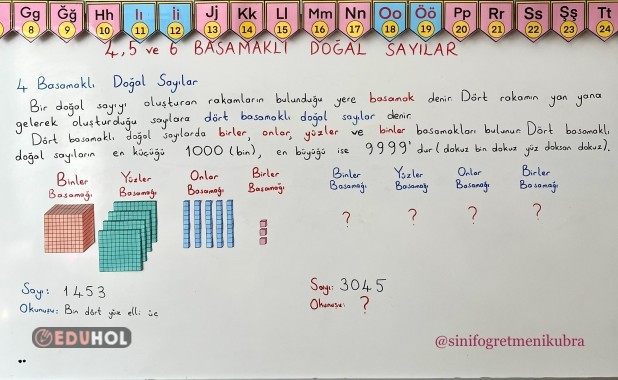 Gg Ğğ Hh Iı İi Jj Kk Ll Mm Nn Oo Öö Pp Rr Ss Şş Tt
8 9 10 11 12 13 14 15 16 17 18 19 20 21 22 23 24
4,5 ve 6 BASAMAKLI DOĞAL SAYILAR
4 Basamaklı Doğal Sayılar
Bir doğal sayıyı oluşturan rakamların bulunduğu yere basamak denir. Dört rakamın yan yana
gelerek oluşturduğu sayılara dört basamaklı doğal sayılar denir.
Dört basamaklı doğal sayılarda birler, onlar, yüzler ve binler basamakları bulunur. Dört basamaklı
doğal sayıların en küçüğü 1000 (bin), en büyüğü ise 9999' dur (dokuz bin dokuz yüz doksan dokuz).
Binler Yüzler Onlar Birler Binler Yüzler Onlar Birler
Basamağı Basamağı Basamağı Basamağı Basamağı Basamağı Basamağı Basamağı
? ? ? ?
Sayı: 1453 Sayı: 3045
Okunuşu: Bin dört yüz elli üç Okunuşu: ?
EDUHOL
@sinifogretmenikubra